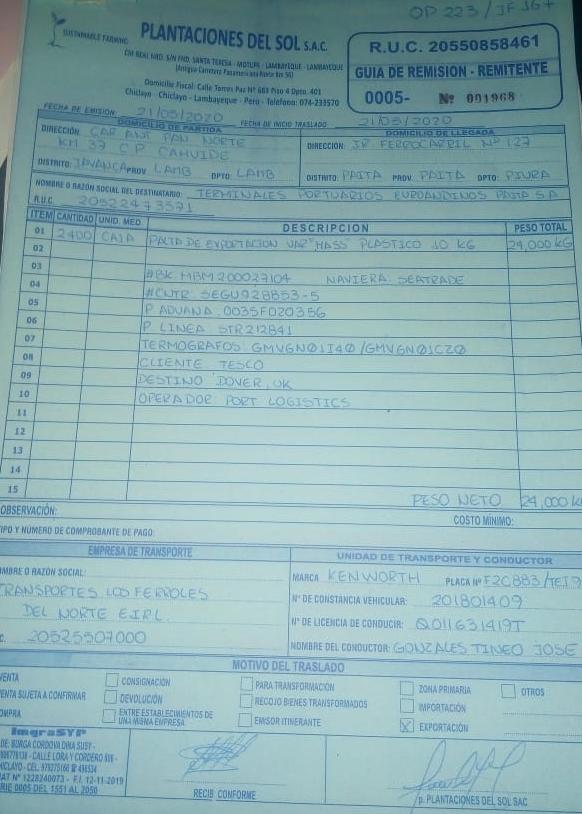 OP 223 / JF JG+
SUSTAINABLE FARMING
PLANTACIONES DEL SOL S.A.C.
CAR. REAL NRO. S/N FND. SANTA TERESA - MOTUPE - LAMBAYEQUE - LAMBAYEQUE
(Antigua Carretera Panamericana Norte Km 56)
Domicilio Fiscal: Calle Torres Paz Nº 681 Piso 4 Dpto. 401
Chiclayo - Chiclayo - Lambayeque - Perú - Telefono: 074-233570
R.U.C. 20550858461
GUIA DE REMISION - REMITENTE
0005- Nº 001968
FECHA DE EMISIÓN: 21/05/2020 FECHA DE INICIO TRASLADO 21/05/2020
DOMICILIO DE PARTIDA
DIRECCIÓN: CAR ANT PAN NORTE
KM 37 C.P CAHUIDE
DISTRITO: JAYANCA PROV LAMB DPTO: LAMB
DOMICILIO DE LLEGADA
DIRECCIÓN: JR FERROCARRIL Nº 127
DISTRITO: PAITA PROV: PAITA DPTO: PIURA
NOMBRE O RAZÓN SOCIAL DEL DESTINATARIO: TERMINALES PORTUARIOS EUROANDINOS PAITA S.A
R.U.C. 20522473571
ITEM CANTIDAD UNID. MED. DESCRIPCION PESO TOTAL
01 2400 CAJA PALTA DE EXPORTACION VAR "HASS" PLASTICO 10 KG 24,000 KG
02
03 #BK MBM200027104 NAVIERA: SEATRADE
04 #CNTR SEGU928853-5
05 P ADUANA 0035F020356
06 P LINEA STR212841
07 TERMOGRAFOS GMVGN01I40/GMVGN01CZ0
08 CLIENTE TESCO
09 DESTINO DOVER, UK
10 OPERADOR PORT LOGISTICS
11
12
13
14
15 PESO NETO 24,000 k
OBSERVACIÓN:
COSTO MÍNIMO:
IPO Y NÚMERO DE COMPROBANTE DE PAGO:
EMPRESA DE TRANSPORTE
MBRE O RAZÓN SOCIAL:
RANSPORTES LOS FERROLES
DEL NORTE E.I.R.L.
C. 20525507000
UNIDAD DE TRANSPORTE Y CONDUCTOR
MARCA KENWORTH PLACA Nº F2C883/
Nº DE CONSTANCIA VEHICULAR: 201801409
Nº DE LICENCIA DE CONDUCIR: Q011631419T
NOMBRE DEL CONDUCTOR: GONZALES TINEO JOSE
MOTIVO DEL TRASLADO
VENTA
ENTA SUJETA A CONFIRMAR
OMPRA
CONSIGNACIÓN
DEVOLUCIÓN
ENTRE ESTABLECIMIENTOS DE
UNA MISMA EMPRESA
PARA TRANSFORMACIÓN
RECOJO BIENES TRANSFORMADOS
EMISOR ITINERANTE
ZONA PRIMARIA
IMPORTACIÓN
X EXPORTACIÓN
OTROS
ImgraSYP
DE: BURGA CORDOVA DINA SUSY -
- CALLE LORA Y CORDERO
ICLAYO - CEL. 979275166
AT Nº 1228240073 - F.I. 12-11-2019
RIE 0005 DEL 1551 AL 2050
RECIBI CONFORME
p. PLANTACIONES DEL SOL SAC